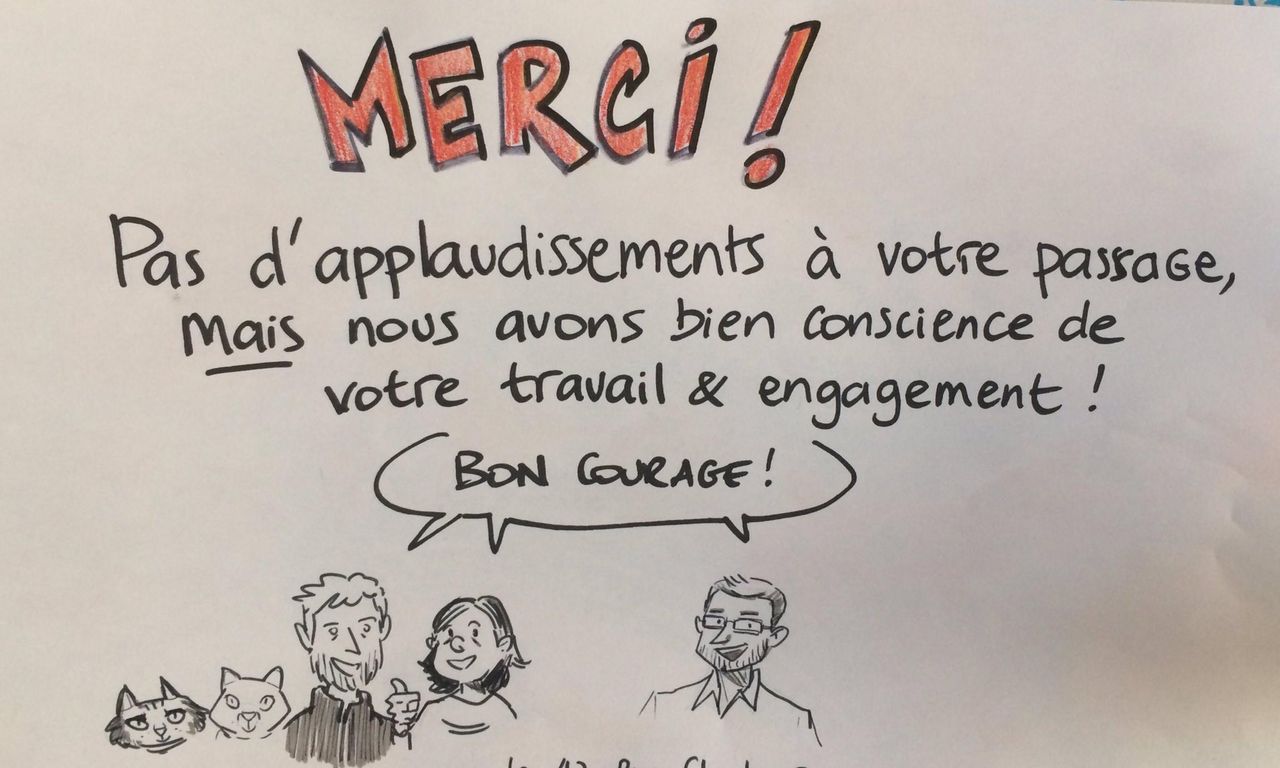 MERCI !
Pas d'applaudissements à votre passage,
mais nous avons bien conscience de
votre travail & engagement !
BON COURAGE !